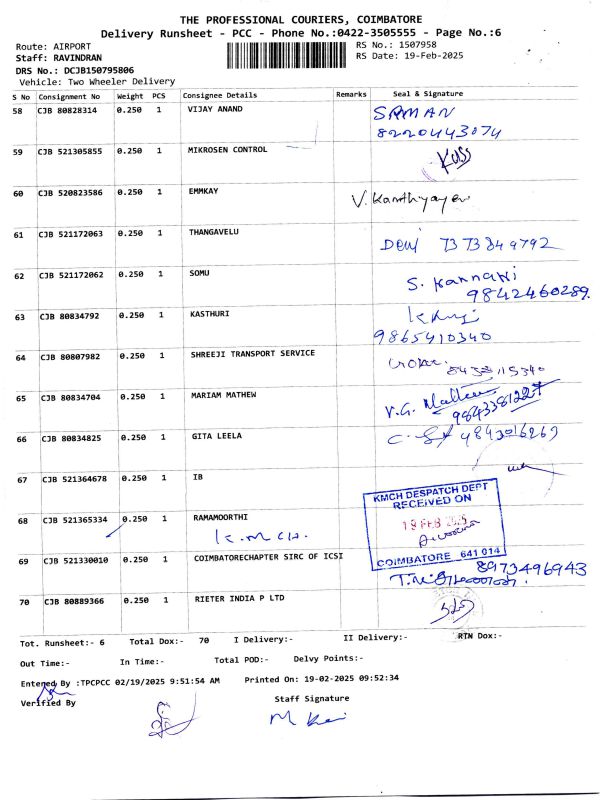 THE PROFESSIONAL COURIERS, COIMBATORE
Delivery Runsheet - PCC - Phone No.:0422-3505555 - Page No.:6
Route: AIRPORT RS No.: 1507958
Staff: RAVINDRAN RS Date: 19-Feb-2025
DRS No.: DCJB150795806
Vehicle: Two Wheeler Delivery
S No Consignment No Weight PCS Consignee Details Remarks Seal & Signature
58 CJB 80828314 0.250 1 VIJAY ANAND
8220443074
59 CJB 521305855 0.250 1 MIKROSEN CONTROL
60 CJB 520823586 0.250 1 EMMKAY
61 CJB 521172063 0.250 1 THANGAVELU
7373849792
62 CJB 521172062 0.250 1 SOMU
9842460289.
63 CJB 80834792 0.250 1 KASTHURI
9865410340
64 CJB 80807982 0.250 1 SHREEJI TRANSPORT SERVICE
65 CJB 80834704 0.250 1 MARIAM MATHEW
66 CJB 80834825 0.250 1 GITA LEELA
67 CJB 521364678 0.250 1 IB
KMCH DESPATCH DEPT
RECEIVED ON
68 CJB 521365334 0.250 1 RAMAMOORTHI
19 FEB 2025
K.M.C.H.
69 CJB 521330010 0.250 1 COIMBATORECHAPTER SIRC OF ICSI
COIMBATORE 641 014
8973496943
70 CJB 80889366 0.250 1 RIETER INDIA P LTD
Tot. Runsheet:- 6 Total Dox:- 70 I Delivery:- II Delivery:- RTN Dox:-
Out Time:- In Time:- Total POD:- Delvy Points:-
Entered By :TPCPCC 02/19/2025 9:51:54 AM Printed On: 19-02-2025 09:52:34
Verified By Staff Signature